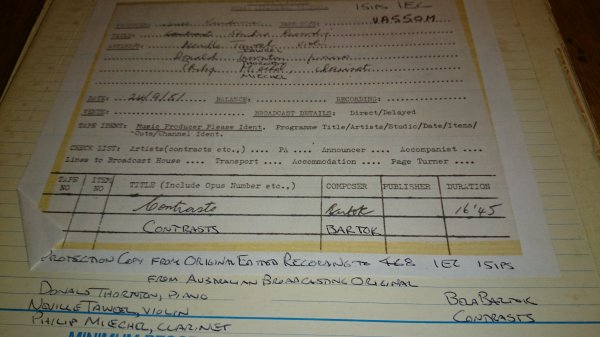 15IPS IEC
PRODUCER: TAPE NOS: VASSOM
TITLE:
ARTISTS: Neville Tawdel violin
TAWDEL
Donald Thornton piano
THORNTON
Philip Miechel clarinet
MIECHEL
DATE: 24/9/81 BALANCE: RECORDING:
VENUE: BROADCAST DETAILS: Direct/Delayed
TAPE IDENT: Music Producer Please Ident. Programme Title/Artists/Studio/Date/Items/
Cuts/Channel Ident.
CHECK LIST: Artists(contracts etc.,) .... PA .... Announcer .... Accompanist ....
Lines to Broadcast House .... Transport .... Accommodation .... Page Turner ....
TAPE NO ITEM NO TITLE (Include Opus Number etc.,) COMPOSER PUBLISHER DURATION
Contrasts Bartok 16'45
CONTRASTS BARTOK
PROTECTION COPY FROM ORIGINAL EDITED RECORDING TO 468 IEC 15IPS
FROM AUSTRALIAN BROADCASTING ORIGINAL
DONALD THORNTON, PIANO
NEVILLE TAWDEL, VIOLIN
PHILIP MIECHEL, CLARINET
BELA BARTOK
CONTRASTS